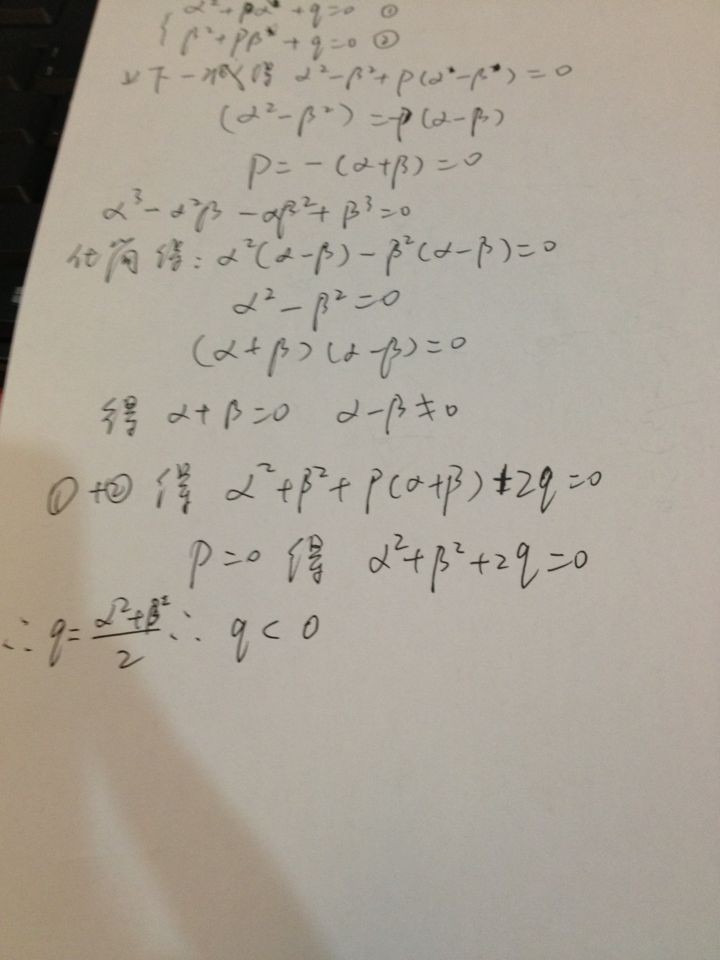 { α²+pα+q=0 ①
β²+pβ+q=0 ②
上下一减得 α²-β²+p(α-β)=0
(α²-β²)=-p(α-β)
p=-(α+β)=0
α³-α²β-αβ²+β³=0
化简得:α²(α-β)-β²(α-β)=0
α²-β²=0
(α+β)(α-β)=0
得 α+β=0 α-β≠0
①+② 得 α²+β²+p(α+β)+2q=0
p=0 得 α²+β²+2q=0
∴q=\frac{α²+β²}{2} ∴ q<0